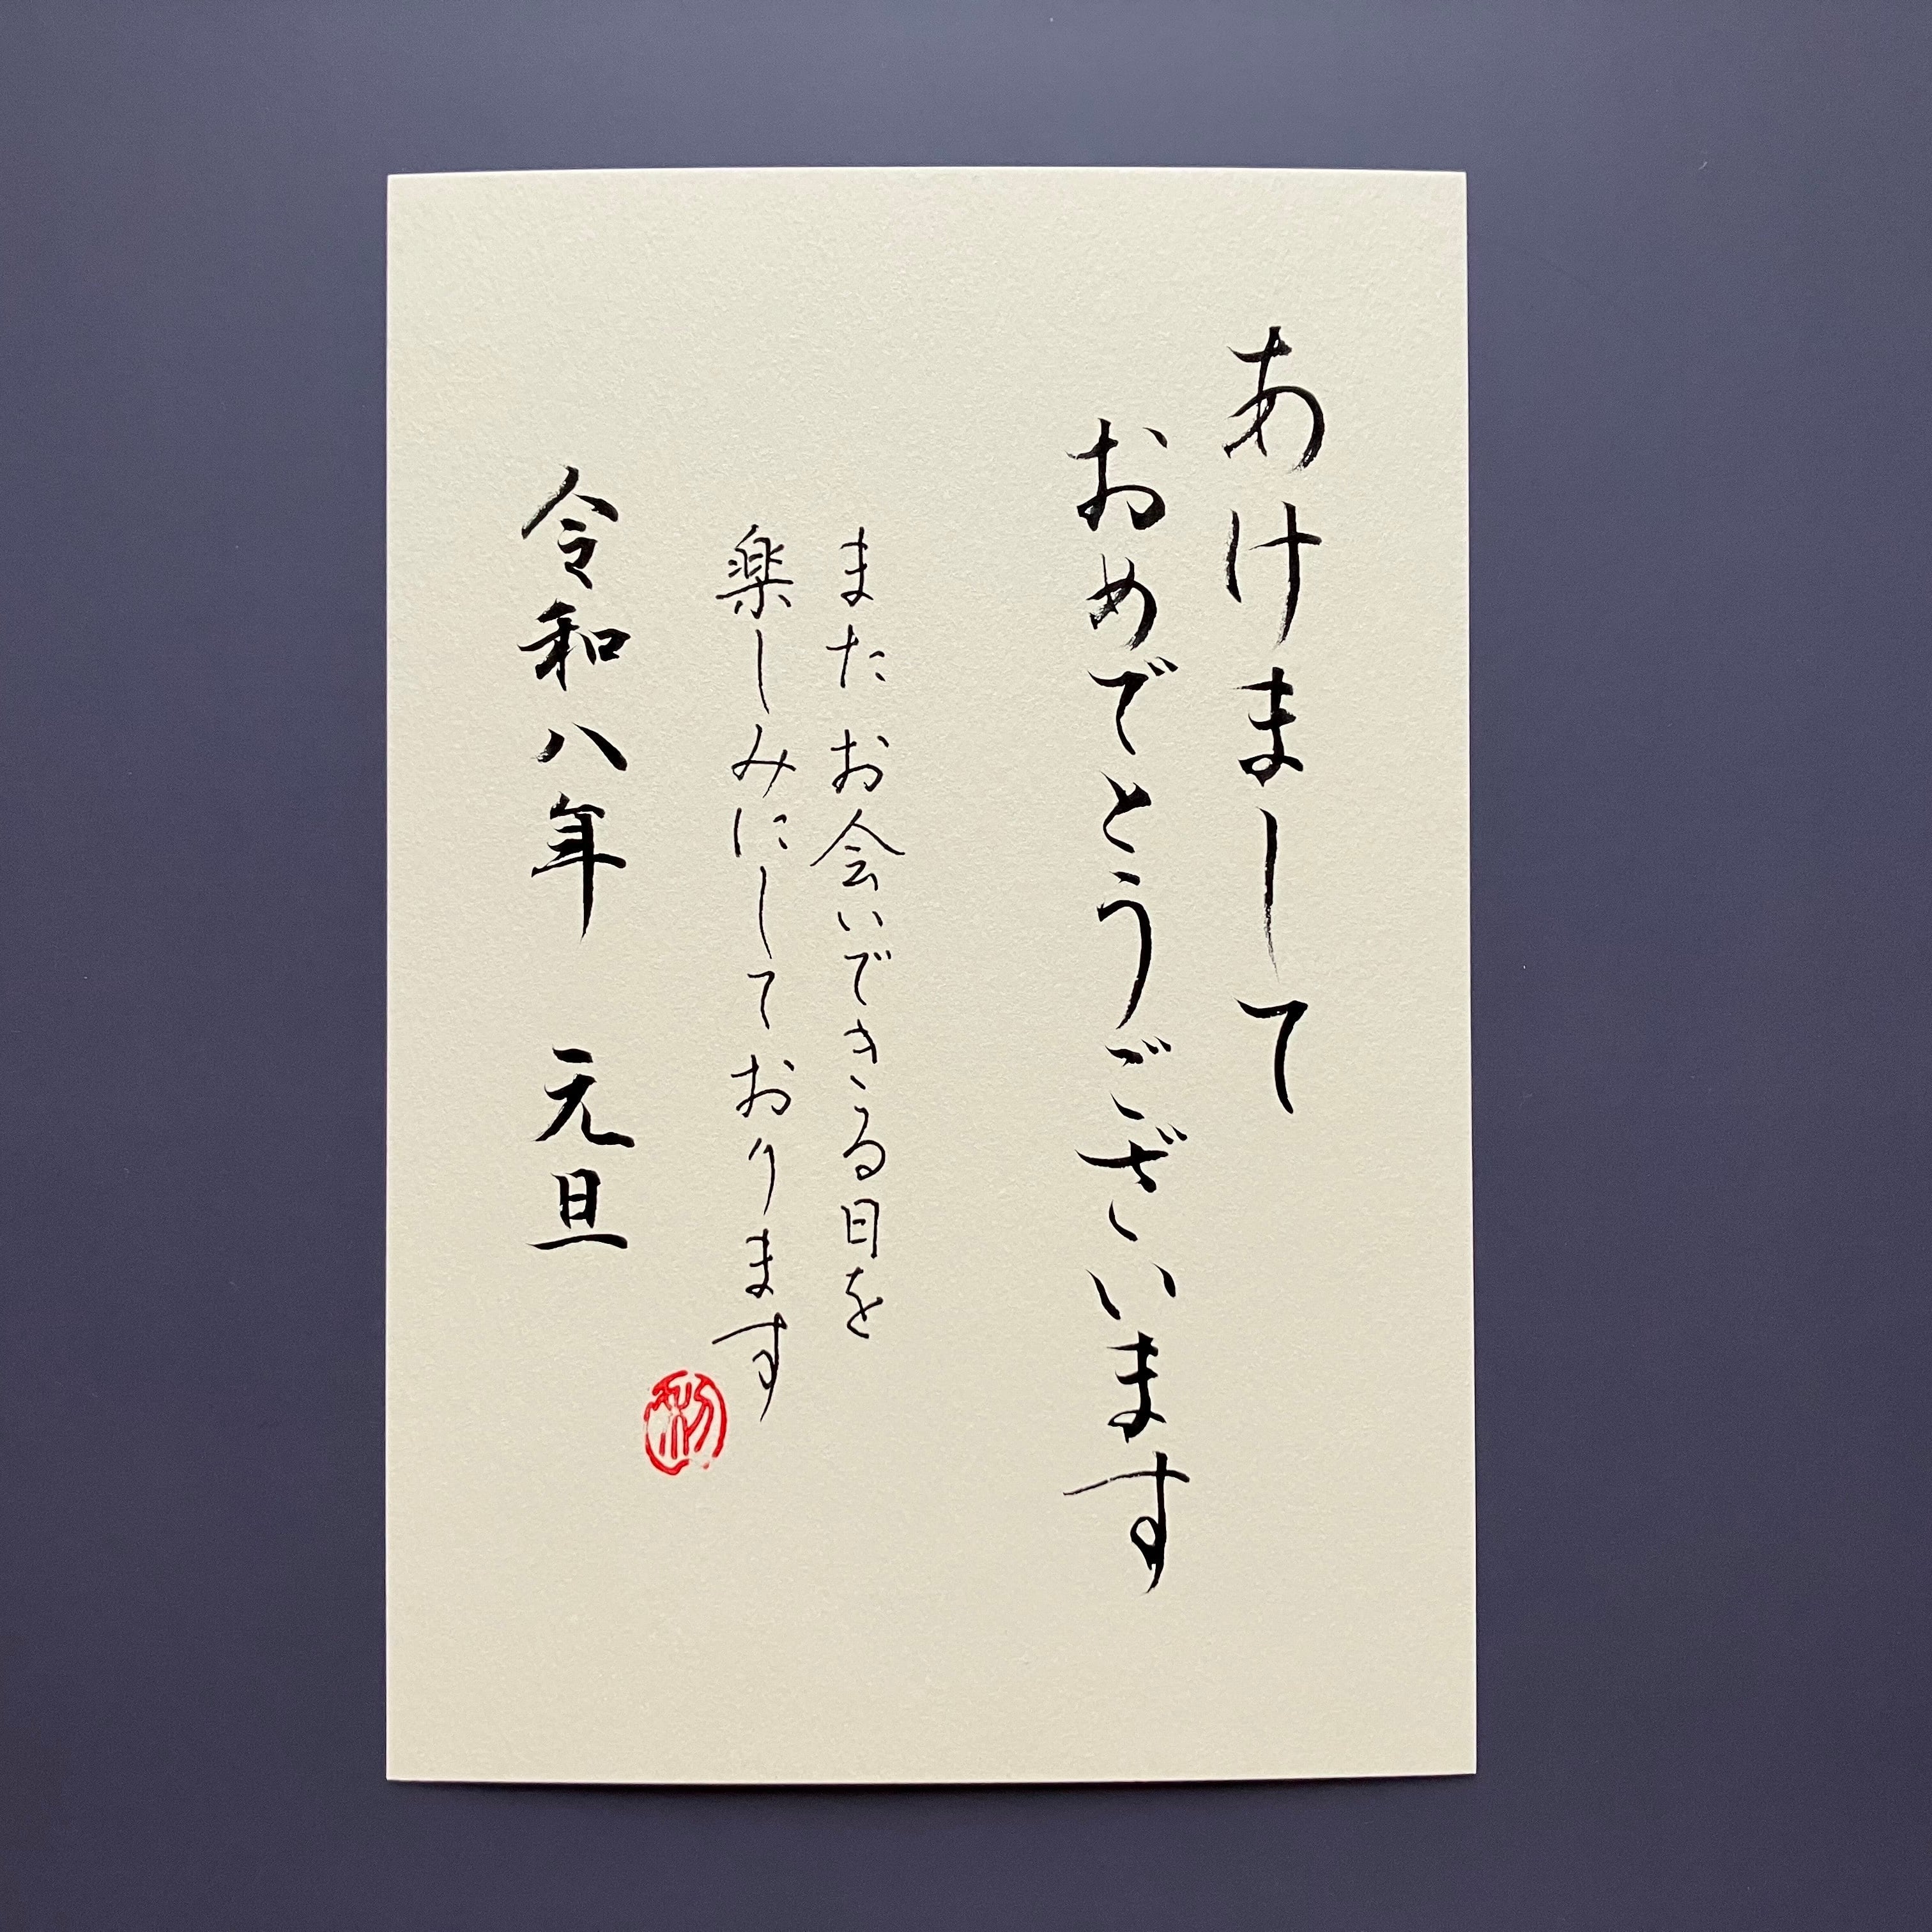 あけまして
おめでとうございます
またお会いできる日を
楽しみにしております
令和八年 元旦